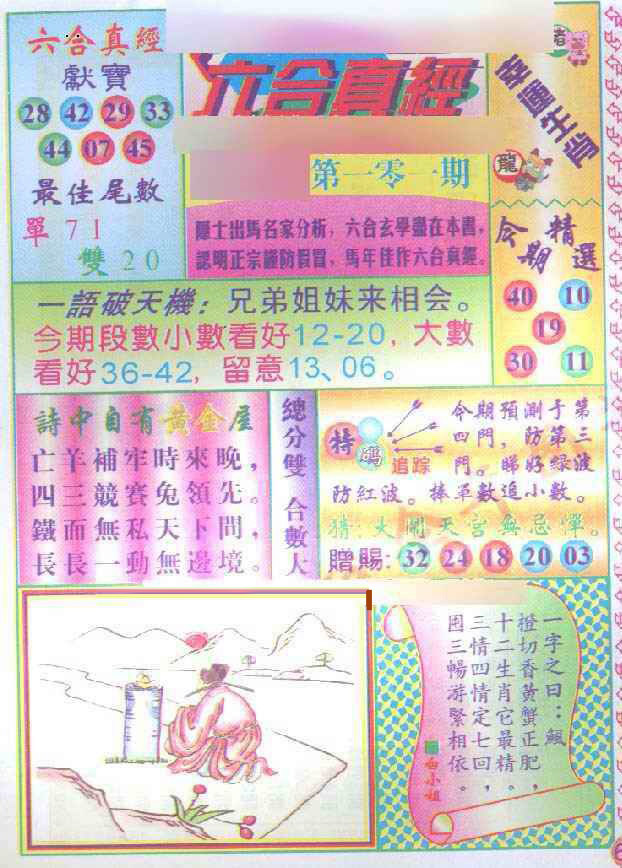 六合真經
獻寶
28 42 29 33
44 07 45
最佳尾數
單 7 1
雙 2 0
六合真經
第一零一期
隱士出馬名家分析，六合玄學盡在本書，
認明正宗謹防假冒，馬年佳作六合真經。
幸運生肖
豬
龍
今期精選
40 10
19
30 11
一語破天機：兄弟姐妹来相会。
今期段數小數看好12-20，大數
看好36-42，留意13、06。
詩中自有黃金屋
亡羊補牢時來晚，
四三競賽兔領先。
鐵面無私天下問，
長長一動無邊境。
總分雙 合數大
特碼
追踪
今期預測于第
四門，防第三
門。睇好绿波
防紅波。捧單數追小數。
猜：大鬧天宮無忌憚。
贈賜：32 24 18 20 03
一字之曰：颿
橙切香黃蟹正肥，
十二生肖它最精，
三情四情定七回。
囤三暢游緊相依。
白小姐